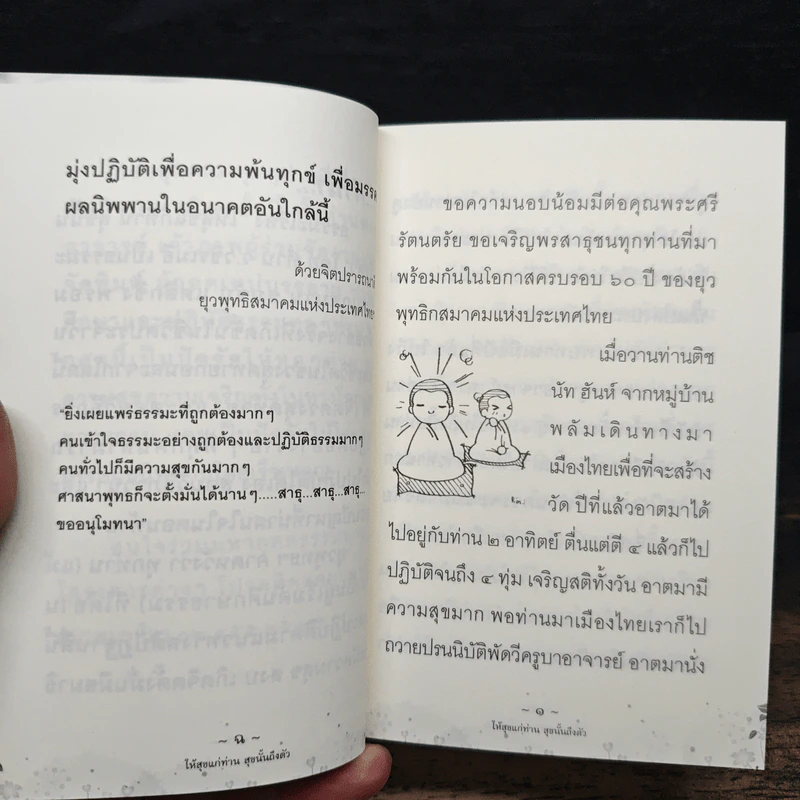 มุ่งปฏิบัติเพื่อความพ้นทุกข์ เพื่อมรรค
ผลนิพพานในอนาคตอันใกล้นี้
ด้วยจิตปรารถนาดี
ยุวพุทธิสมาคมแห่งประเทศไทย
"ยิ่งเผยแพร่ธรรมะที่ถูกต้องมากๆ
คนเข้าใจธรรมะอย่างถูกต้องและปฏิบัติธรรมมากๆ
คนทั่วไปก็มีความสุขกันมากๆ
ศาสนาพุทธก็จะตั้งมั่นได้นานๆ.....สาธุ...สาธุ...สาธุ...
ขออนุโมทนา"
~ ฉ ~
ให้สุขแก่ท่าน สุขนั้นถึงตัว
ขอความนอบน้อมมีต่อคุณพระศรี
รัตนตรัย ขอเจริญพรสาธุชนทุกท่านที่มา
พร้อมกันในโอกาสครบรอบ ๖๐ ปี ของยุว
พุทธิกสมาคมแห่งประเทศไทย
เมื่อวานท่านติช
นัท ฮันห์ จากหมู่บ้าน
พลัมเดินทางมา
เมืองไทยเพื่อที่จะสร้าง
วัด ปีที่แล้วอาตมาได้
ไปอยู่กับท่าน ๒ อาทิตย์ ตื่นแต่ตี ๔ แล้วก็ไป
ปฏิบัติจนถึง ๔ ทุ่ม เจริญสติทั้งวัน อาตมามี
ความสุขมาก พอท่านมาเมืองไทยเราก็ไป
ถวายปรนนิบัติพัดวีครูบาอาจารย์ อาตมานั่ง
~ ๑ ~
ให้สุขแก่ท่าน สุขนั้นถึงตัว